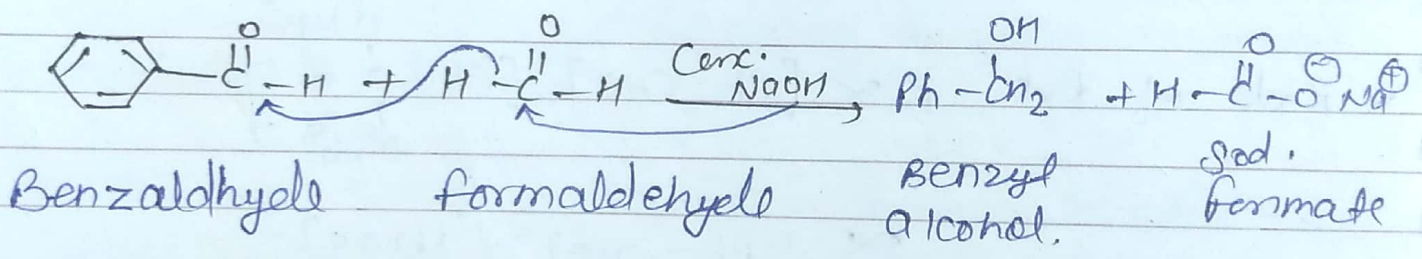 O O OH O
C - H + H - C - H Conc. NaOH Ph - CH2 + H - C - O⊖ Na⊕
Benzaldhyde formaldehyde Benzyl alcohol. Sod. formate